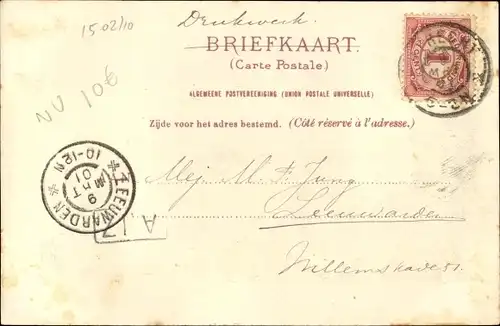 1502/10
Drukwerk.
BRIEFKAART.
(Carte Postale)
ALGEMEENE POSTVEREENIGING (UNION POSTALE UNIVERSELLE)
Zijde voor het adres bestemd. (Côté réservé à l'adresse.)
NV 106
1
LEEUWARDEN
9 MRT 01
10-12N
A 7
Mej. M. F. Jung
Leeuwarden
Willemskade 51.